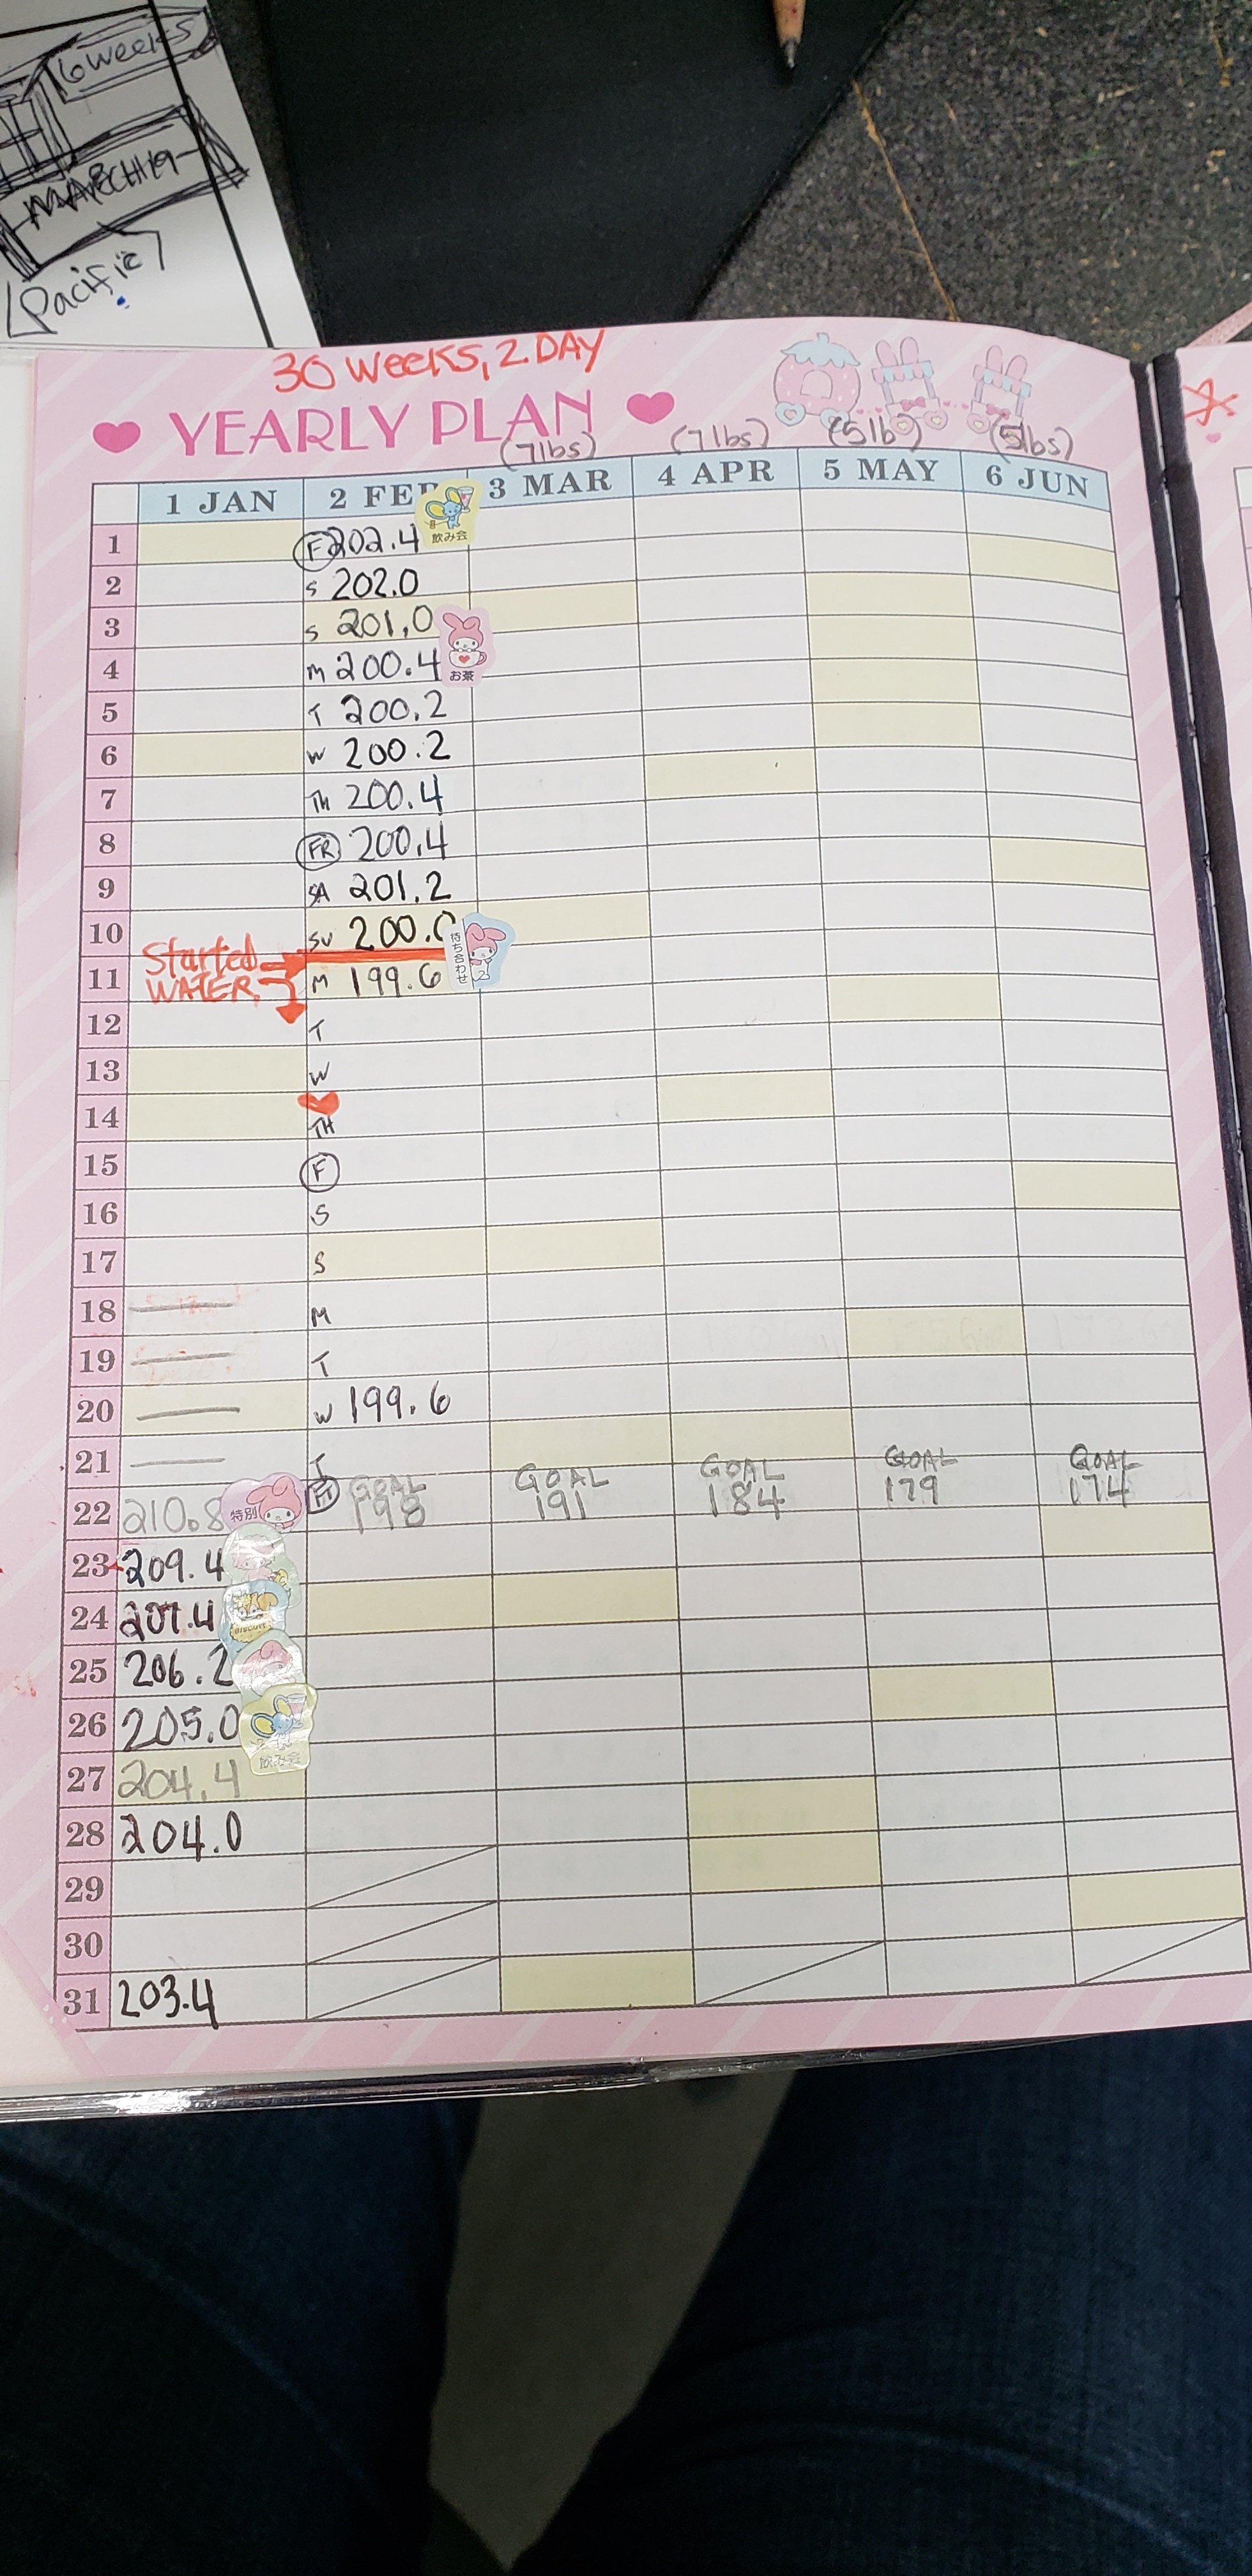 6 weeks
MARCH 19
(Pacific)
30 Weeks, 2 DAY
YEARLY PLAN
(7lbs) (7lbs) (5lb) (5lbs)
1 JAN 2 FEB 3 MAR 4 APR 5 MAY 6 JUN
1 F 202.4 飲み会
2 S 202.0
3 S 201.0
4 M 200.4 お茶
5 T 200.2
6 W 200.2
7 TH 200.4
8 FR 200.4
9 SA 201.2
10 SU 200.0 待ち合わせ
Started
WATER
11 M 199.6
12 T
13 W
14 TH
15 F
16 S
17 S
18 M
19 T
20 W 199.6
21 T
GOAL GOAL GOAL GOAL GOAL
22 210.8 特別 198 191 184 179 174
23 209.4
24 207.4
25 206.2
26 205.0
飲み会
27 204.4
28 204.0
29
30
31 203.4